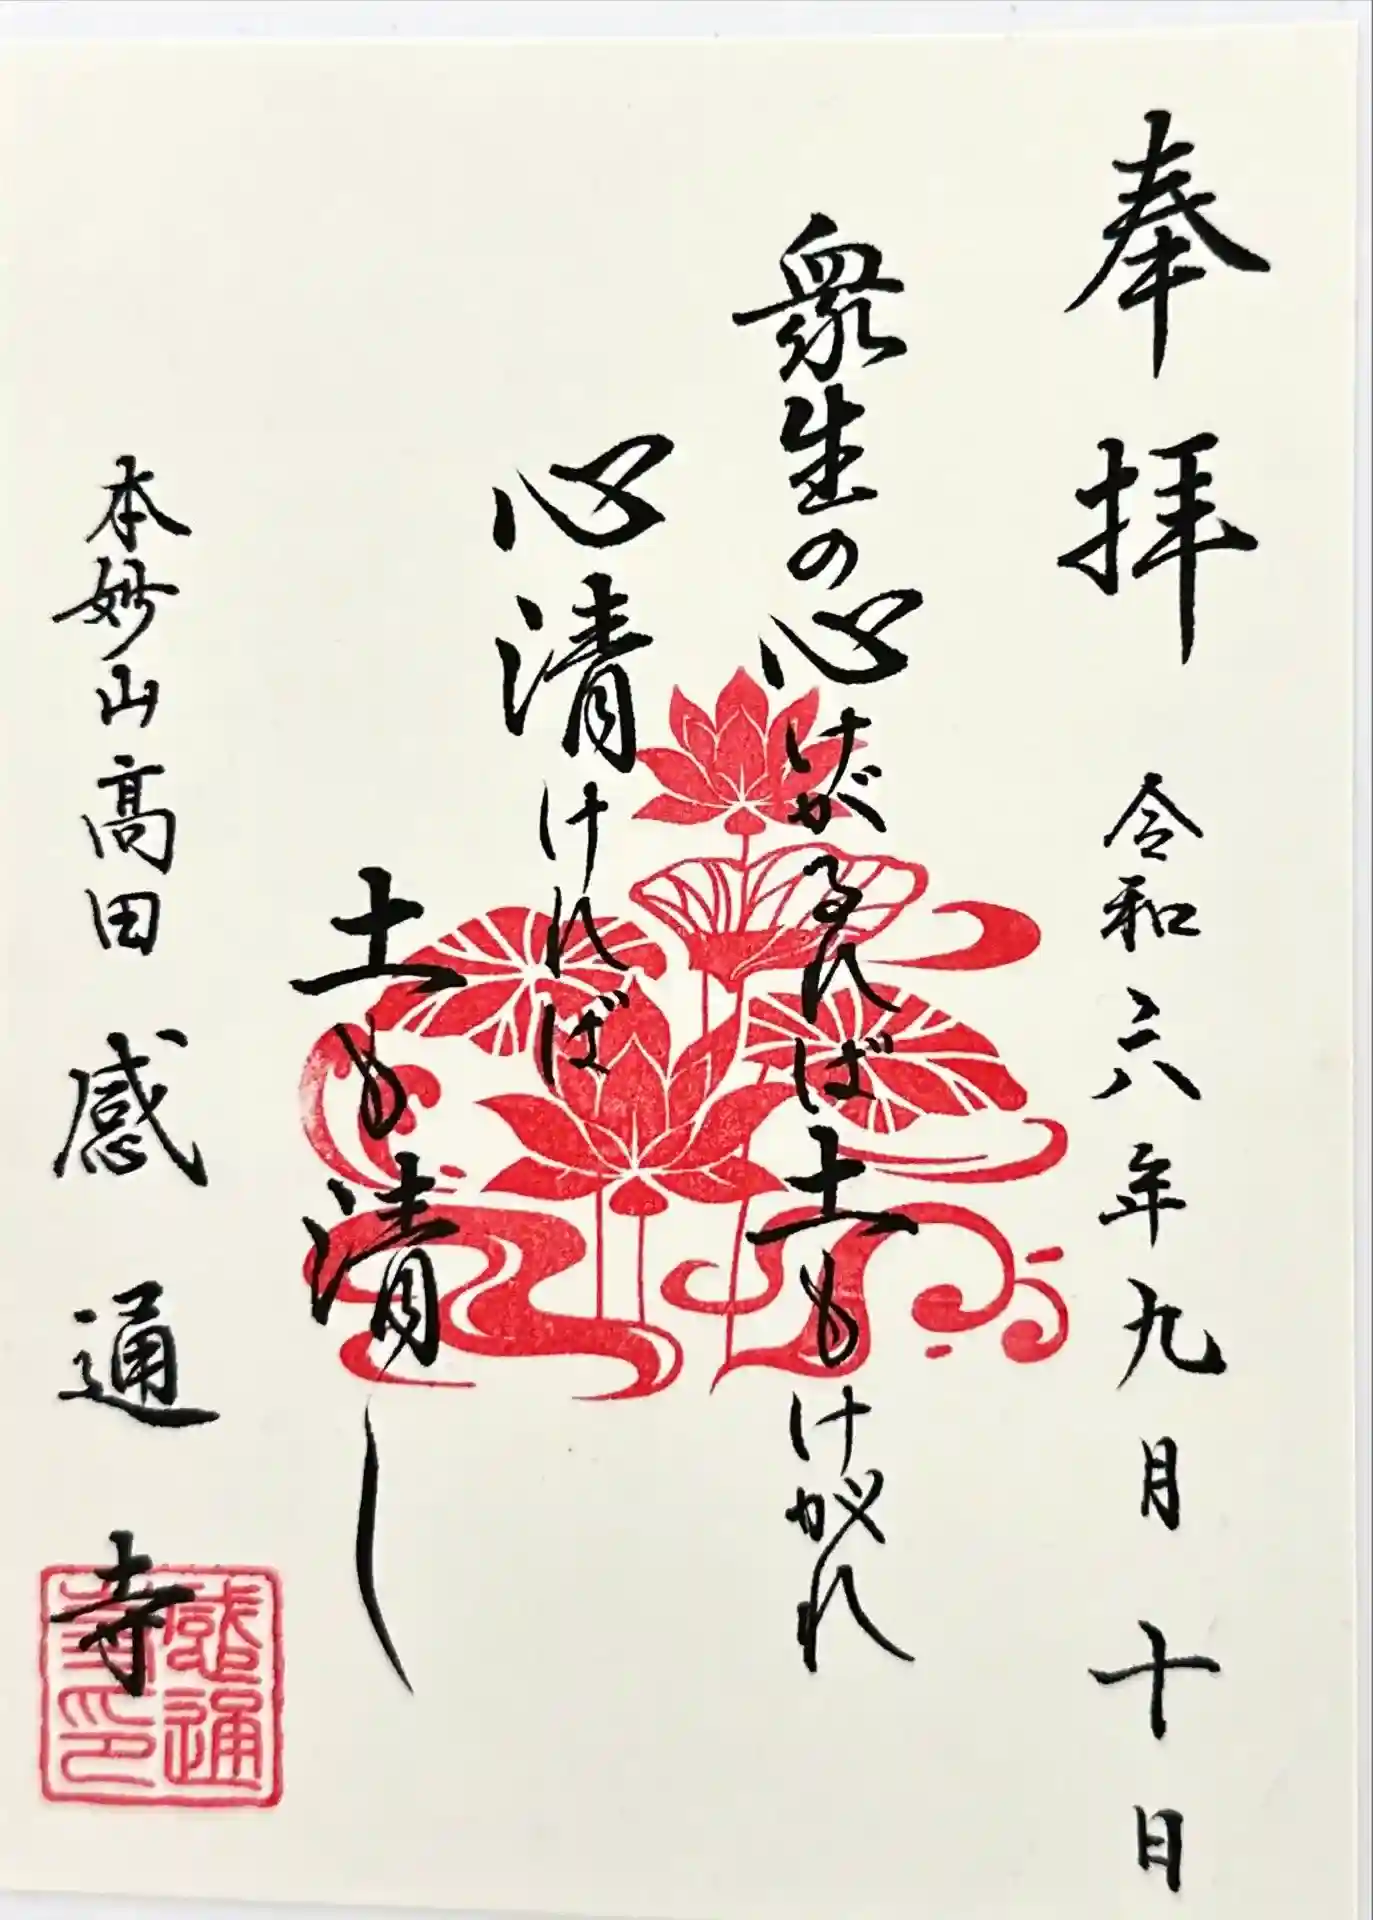 奉拝 令和六年九月十日
衆生の心けがるれば土もけがれ
心清ければ
土も清し
本妙山高田 感通寺
感通寺印